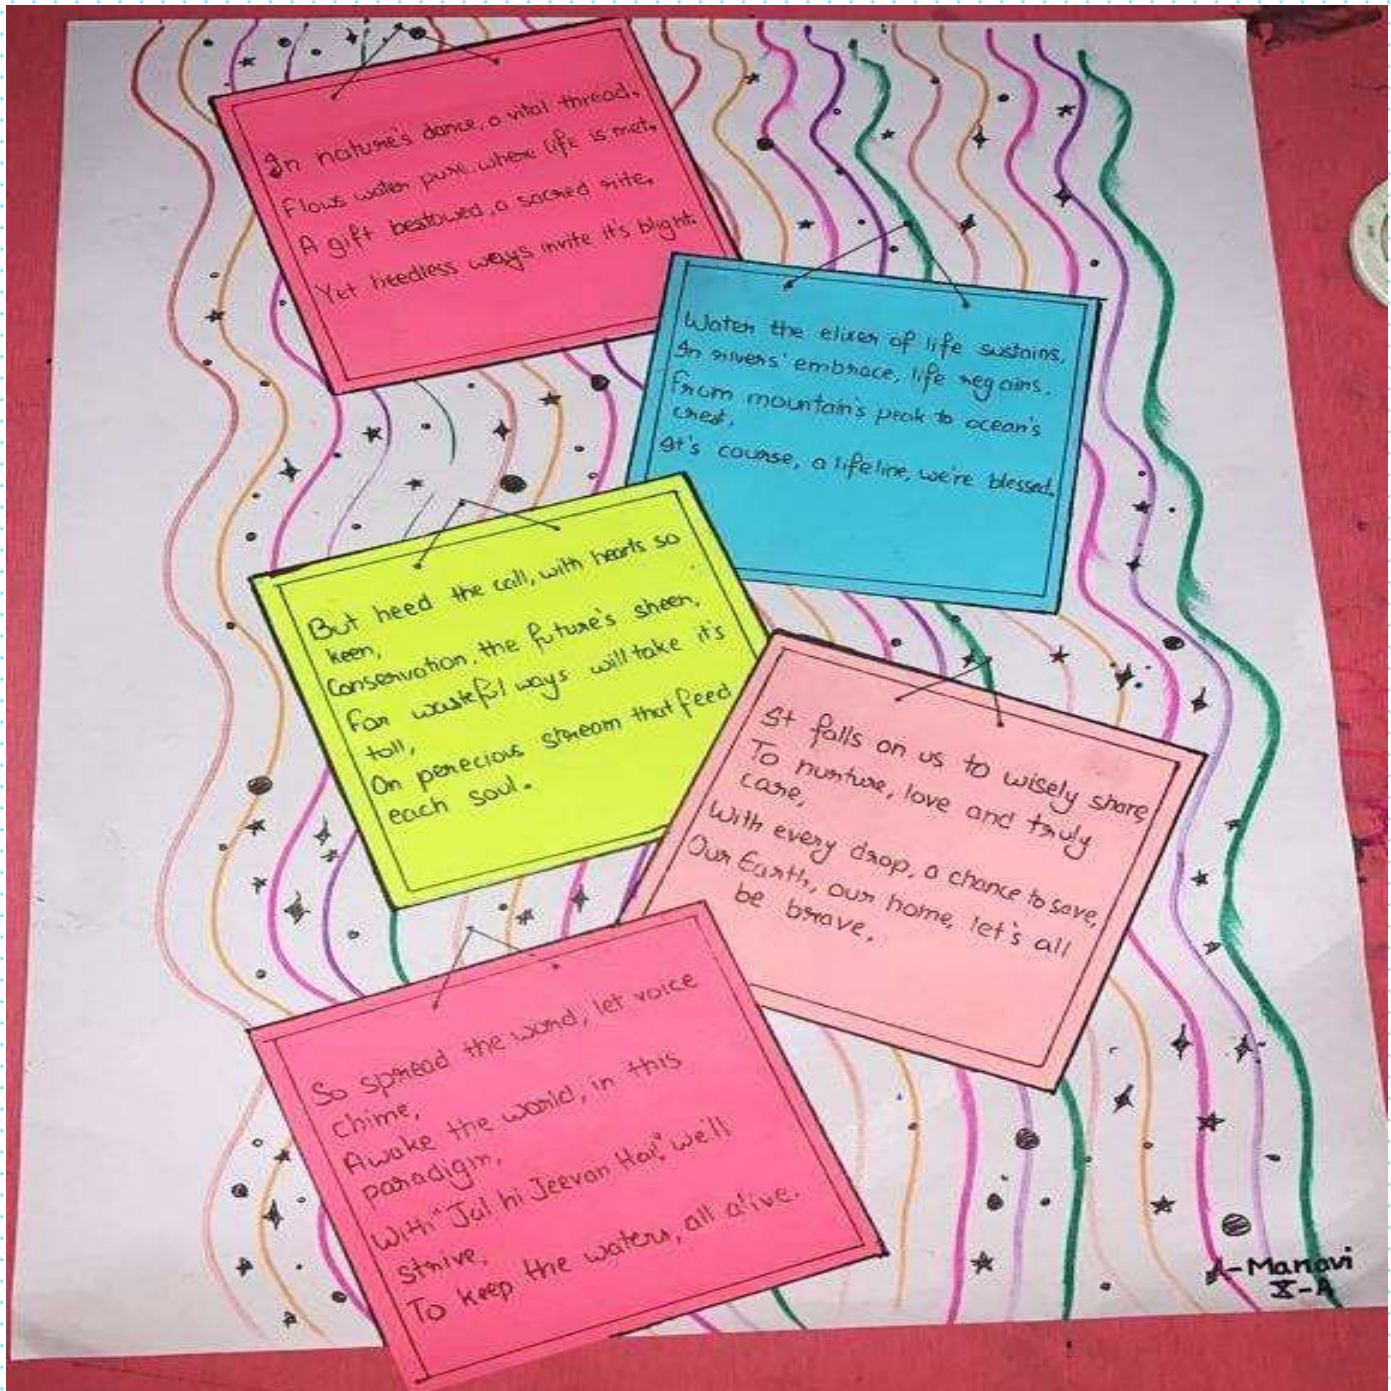 In nature's dance, a vital thread,
Flows water pure where life is met,
A gift bestowed, a sacred rite,
Yet heedless ways invite it's blight.
Water the elixer of life sustains,
In rivers' embrace, life regains.
From mountain's peak to ocean's
crest,
It's course, a lifeline, we're blessed.
But heed the call, with hearts so
keen,
Conservation, the future's sheen,
For wasteful ways will take it's
toll,
On perecious stream that feed
each soul.
It falls on us to wisely share
To nurture, love and truly
care,
With every drop, a chance to save,
Our Earth, our home, let's all
be brave.
So spread the word, let voice
chime,
Awake the world, in this
paradigm,
With "Jal hi Jeevan Hai," we'll
strive,
To keep the waters, all alive.
A-Manavi
X-A